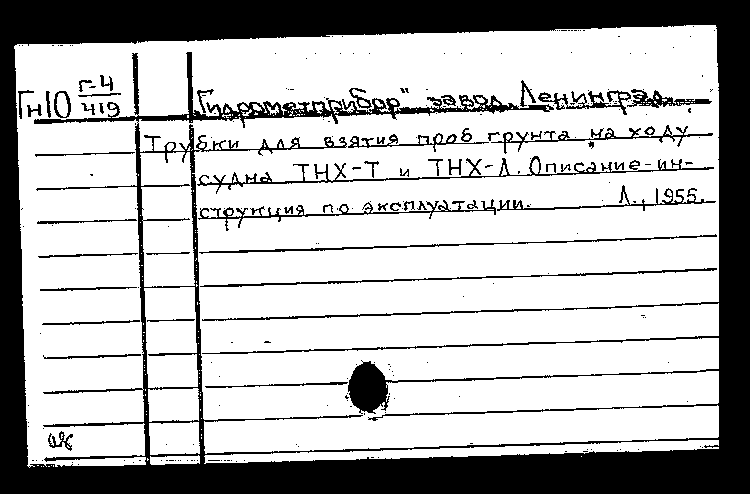 Гн10 Г-4/419
„Гидрометприбор" завод. Ленинград.
Трубки для взятия проб грунта на ходу
судна ТНХ-Т и ТНХ-Л. Описание-ин-
струкция по эксплуатации. Л., 1955.